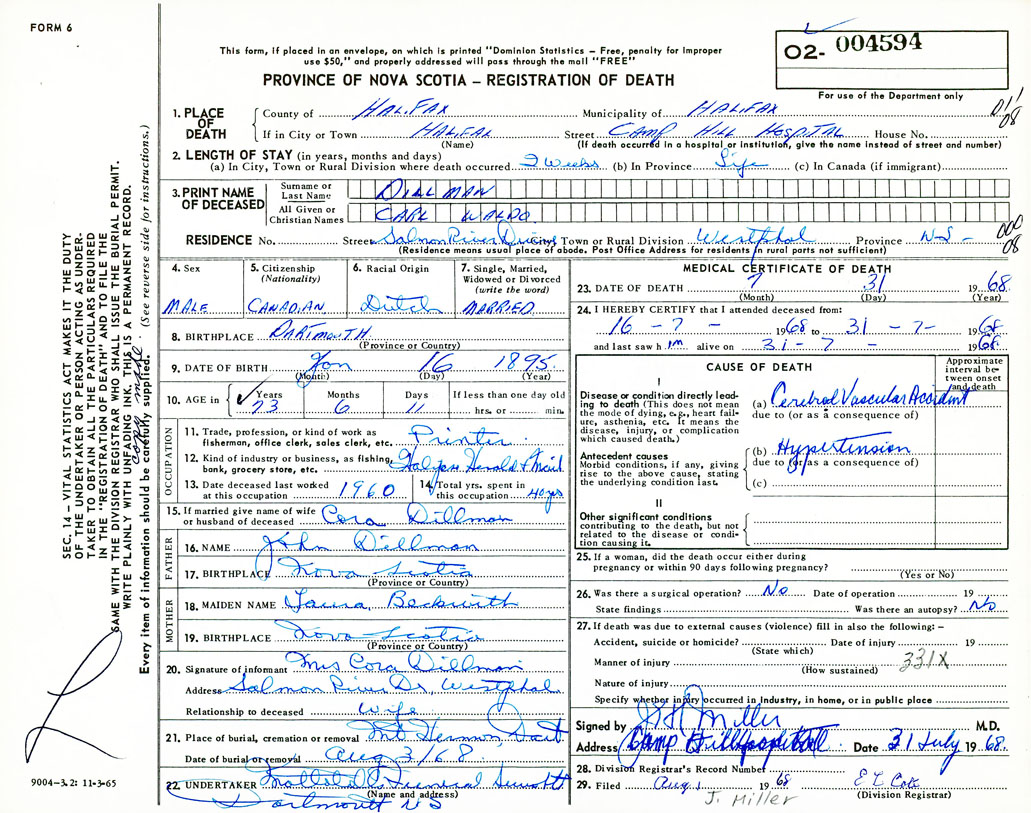 FORM 6
O2- 004594
This form, if placed in an envelope, on which is printed "Dominion Statistics – Free, penalty for improper
use $50," and properly addressed will pass through the mail "FREE"
PROVINCE OF NOVA SCOTIA – REGISTRATION OF DEATH
For use of the Department only
1. PLACE OF DEATH County of HALIFAX Municipality of HALIFAX 011 08
If in City or Town HALIFAX Street CAMP HILL HOSPITAL House No.
(Name) (If death occurred in a hospital or institution, give the name instead of street and number)
2. LENGTH OF STAY (in years, months and days)
(a) In City, Town or Rural Division where death occurred 2 Weeks (b) In Province Life (c) In Canada (if immigrant)
3. PRINT NAME OF DECEASED Surname or Last Name DILLMAN
All Given or Christian Names CARL WALDO
RESIDENCE No. Street Salmon River Drive City, Town or Rural Division Westphal Province N.S. 000 08
(Residence means usual place of abode. Post Office Address for residents in rural parts not sufficient)
4. Sex MALE
5. Citizenship (Nationality) CANADIAN
6. Racial Origin Dutch
7. Single, Married, Widowed or Divorced (write the word) MARRIED
8. BIRTHPLACE DARTMOUTH
(Province or Country)
9. DATE OF BIRTH Jan 16 1895
(Month) (Day) (Year)
10. AGE in Years 73 Months 6 Days 11 If less than one day old hrs. or min.
OCCUPATION
11. Trade, profession, or kind of work as fisherman, office clerk, sales clerk, etc. Printer
12. Kind of industry or business, as fishing, bank, grocery store, etc. Halifax Herald & Mail
13. Date deceased last worked at this occupation 1960 14. Total yrs. spent in this occupation 40 yrs
15. If married give name of wife or husband of deceased Cora Dillman
FATHER
16. NAME John Dillman
17. BIRTHPLACE Nova Scotia
(Province or Country)
MOTHER
18. MAIDEN NAME Laura Beckwith
19. BIRTHPLACE Nova Scotia
(Province or Country)
20. Signature of informant Mrs Cora Dillman
Address Salmon River Dr, Westphal
Relationship to deceased Wife
21. Place of burial, cremation or removal Mt Hermon, Dart
Date of burial or removal Aug 3/68
22. UNDERTAKER Funeral
(Name and address)
Dartmouth NS
MEDICAL CERTIFICATE OF DEATH
23. DATE OF DEATH 7 31 1968
(Month) (Day) (Year)
24. I HEREBY CERTIFY that I attended deceased from:
16 - 7 - 1968 to 31 - 7 - 1968
and last saw him alive on 31 - 7 - 1968
CAUSE OF DEATH
Approximate interval between onset and death
I
Disease or condition directly leading to death (This does not mean the mode of dying, e.g., heart failure, asthenia, etc. It means the disease, injury, or complication which caused death.)
(a) Cerebral Vascular Accident
due to (or as a consequence of)
Antecedent causes
Morbid conditions, if any, giving rise to the above cause, stating the underlying condition last.
(b) Hypertension
due to (or as a consequence of)
(c)
II
Other significant conditions
contributing to the death, but not related to the disease or condition causing it.
25. If a woman, did the death occur either during pregnancy or within 90 days following pregnancy?
(Yes or No)
26. Was there a surgical operation? No Date of operation 19
State findings Was there an autopsy? No
27. If death was due to external causes (violence) fill in also the following: –
Accident, suicide or homicide? Date of injury 19
(State which)
Manner of injury 331X
(How sustained)
Nature of injury
Specify whether injury occurred in Industry, in home, or in public place
Signed by J H Miller M.D.
Address Camp Hill Hospital Date 31 July 1968
28. Division Registrar's Record Number
29. Filed Aug 1 1968 E L Cote
(Division Registrar)
J. Miller
SEC. 14 – VITAL STATISTICS ACT MAKES IT THE DUTY
OF THE UNDERTAKER OR PERSON ACTING AS UNDER-
TAKER TO OBTAIN ALL THE PARTICULARS REQUIRED
IN THE "REGISTRATION OF DEATH" AND TO FILE THE
SAME WITH THE DIVISION REGISTRAR WHO SHALL ISSUE THE BURIAL PERMIT.
WRITE PLAINLY WITH UNFADING INK. THIS IS A PERMANENT RECORD.
Every item of information should be carefully supplied. (See reverse side for instructions.)
9004-3.2: 11-3-65